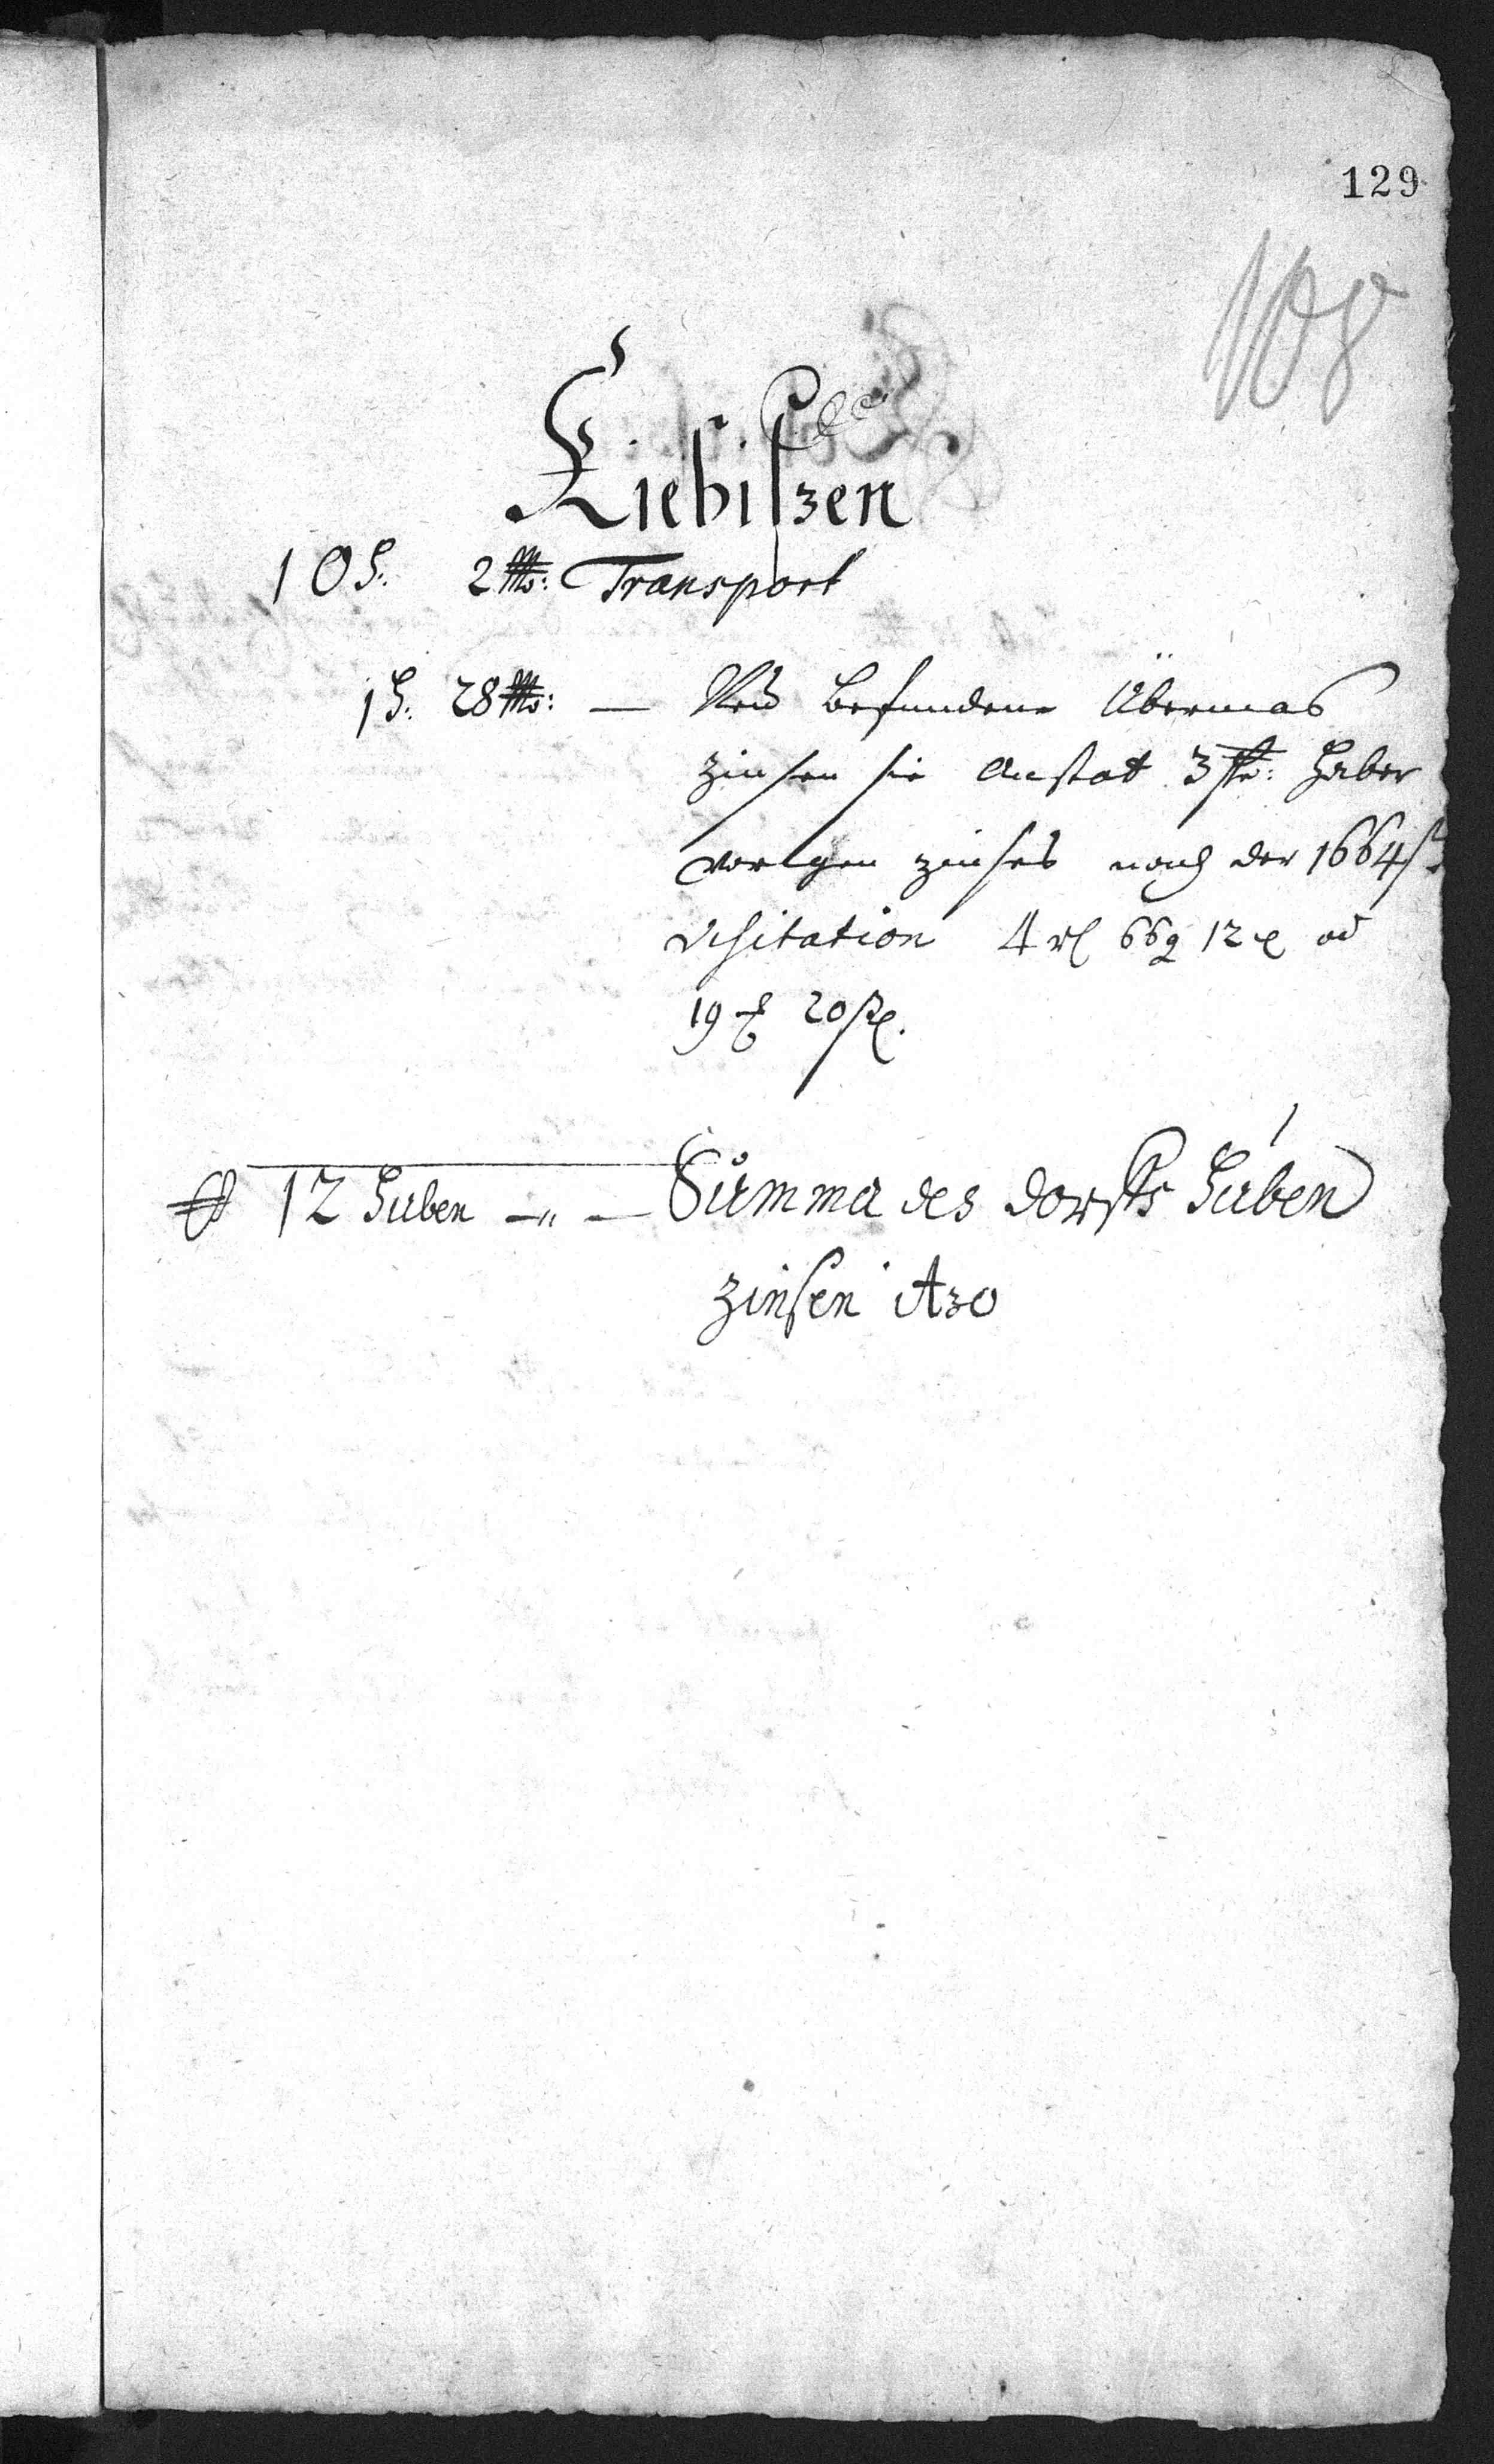 129
108
Kiebitzen
10 H. 2 M: Transport
1 H. 28 M: — Neu befundene Übermas
zinsen sie Anstat 3 Haber
vorigen zinses nach der 1664
visitation 4 rl 66 g 12 ₰ od
19 20 ß
12 Huben — " — Summa des dorffs Huben
zinsen Azo